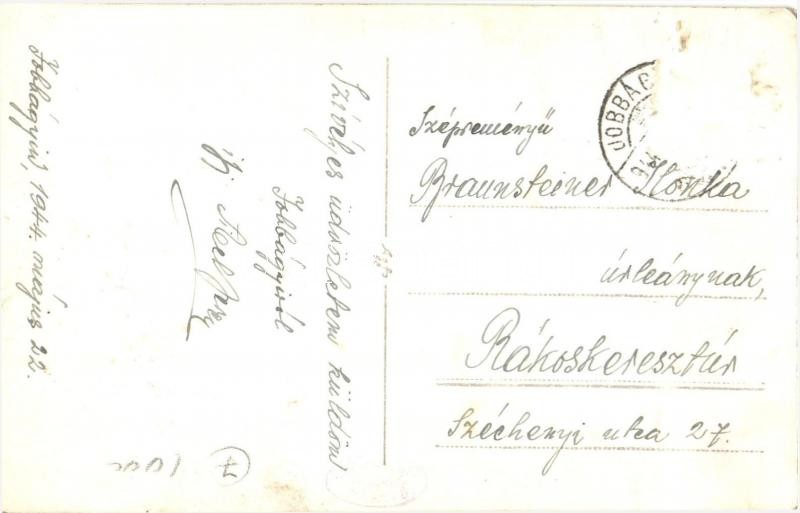 Jobbágyin, 1944. május 22.
Szívélyes üdvözletem küldöm
Jobbágyiról
ifj.
JOBBÁG
Szépreményű
Braunsteiner Ilonka
úrleánynak,
Rákoskeresztúr
Széchenyi utca 27.
7